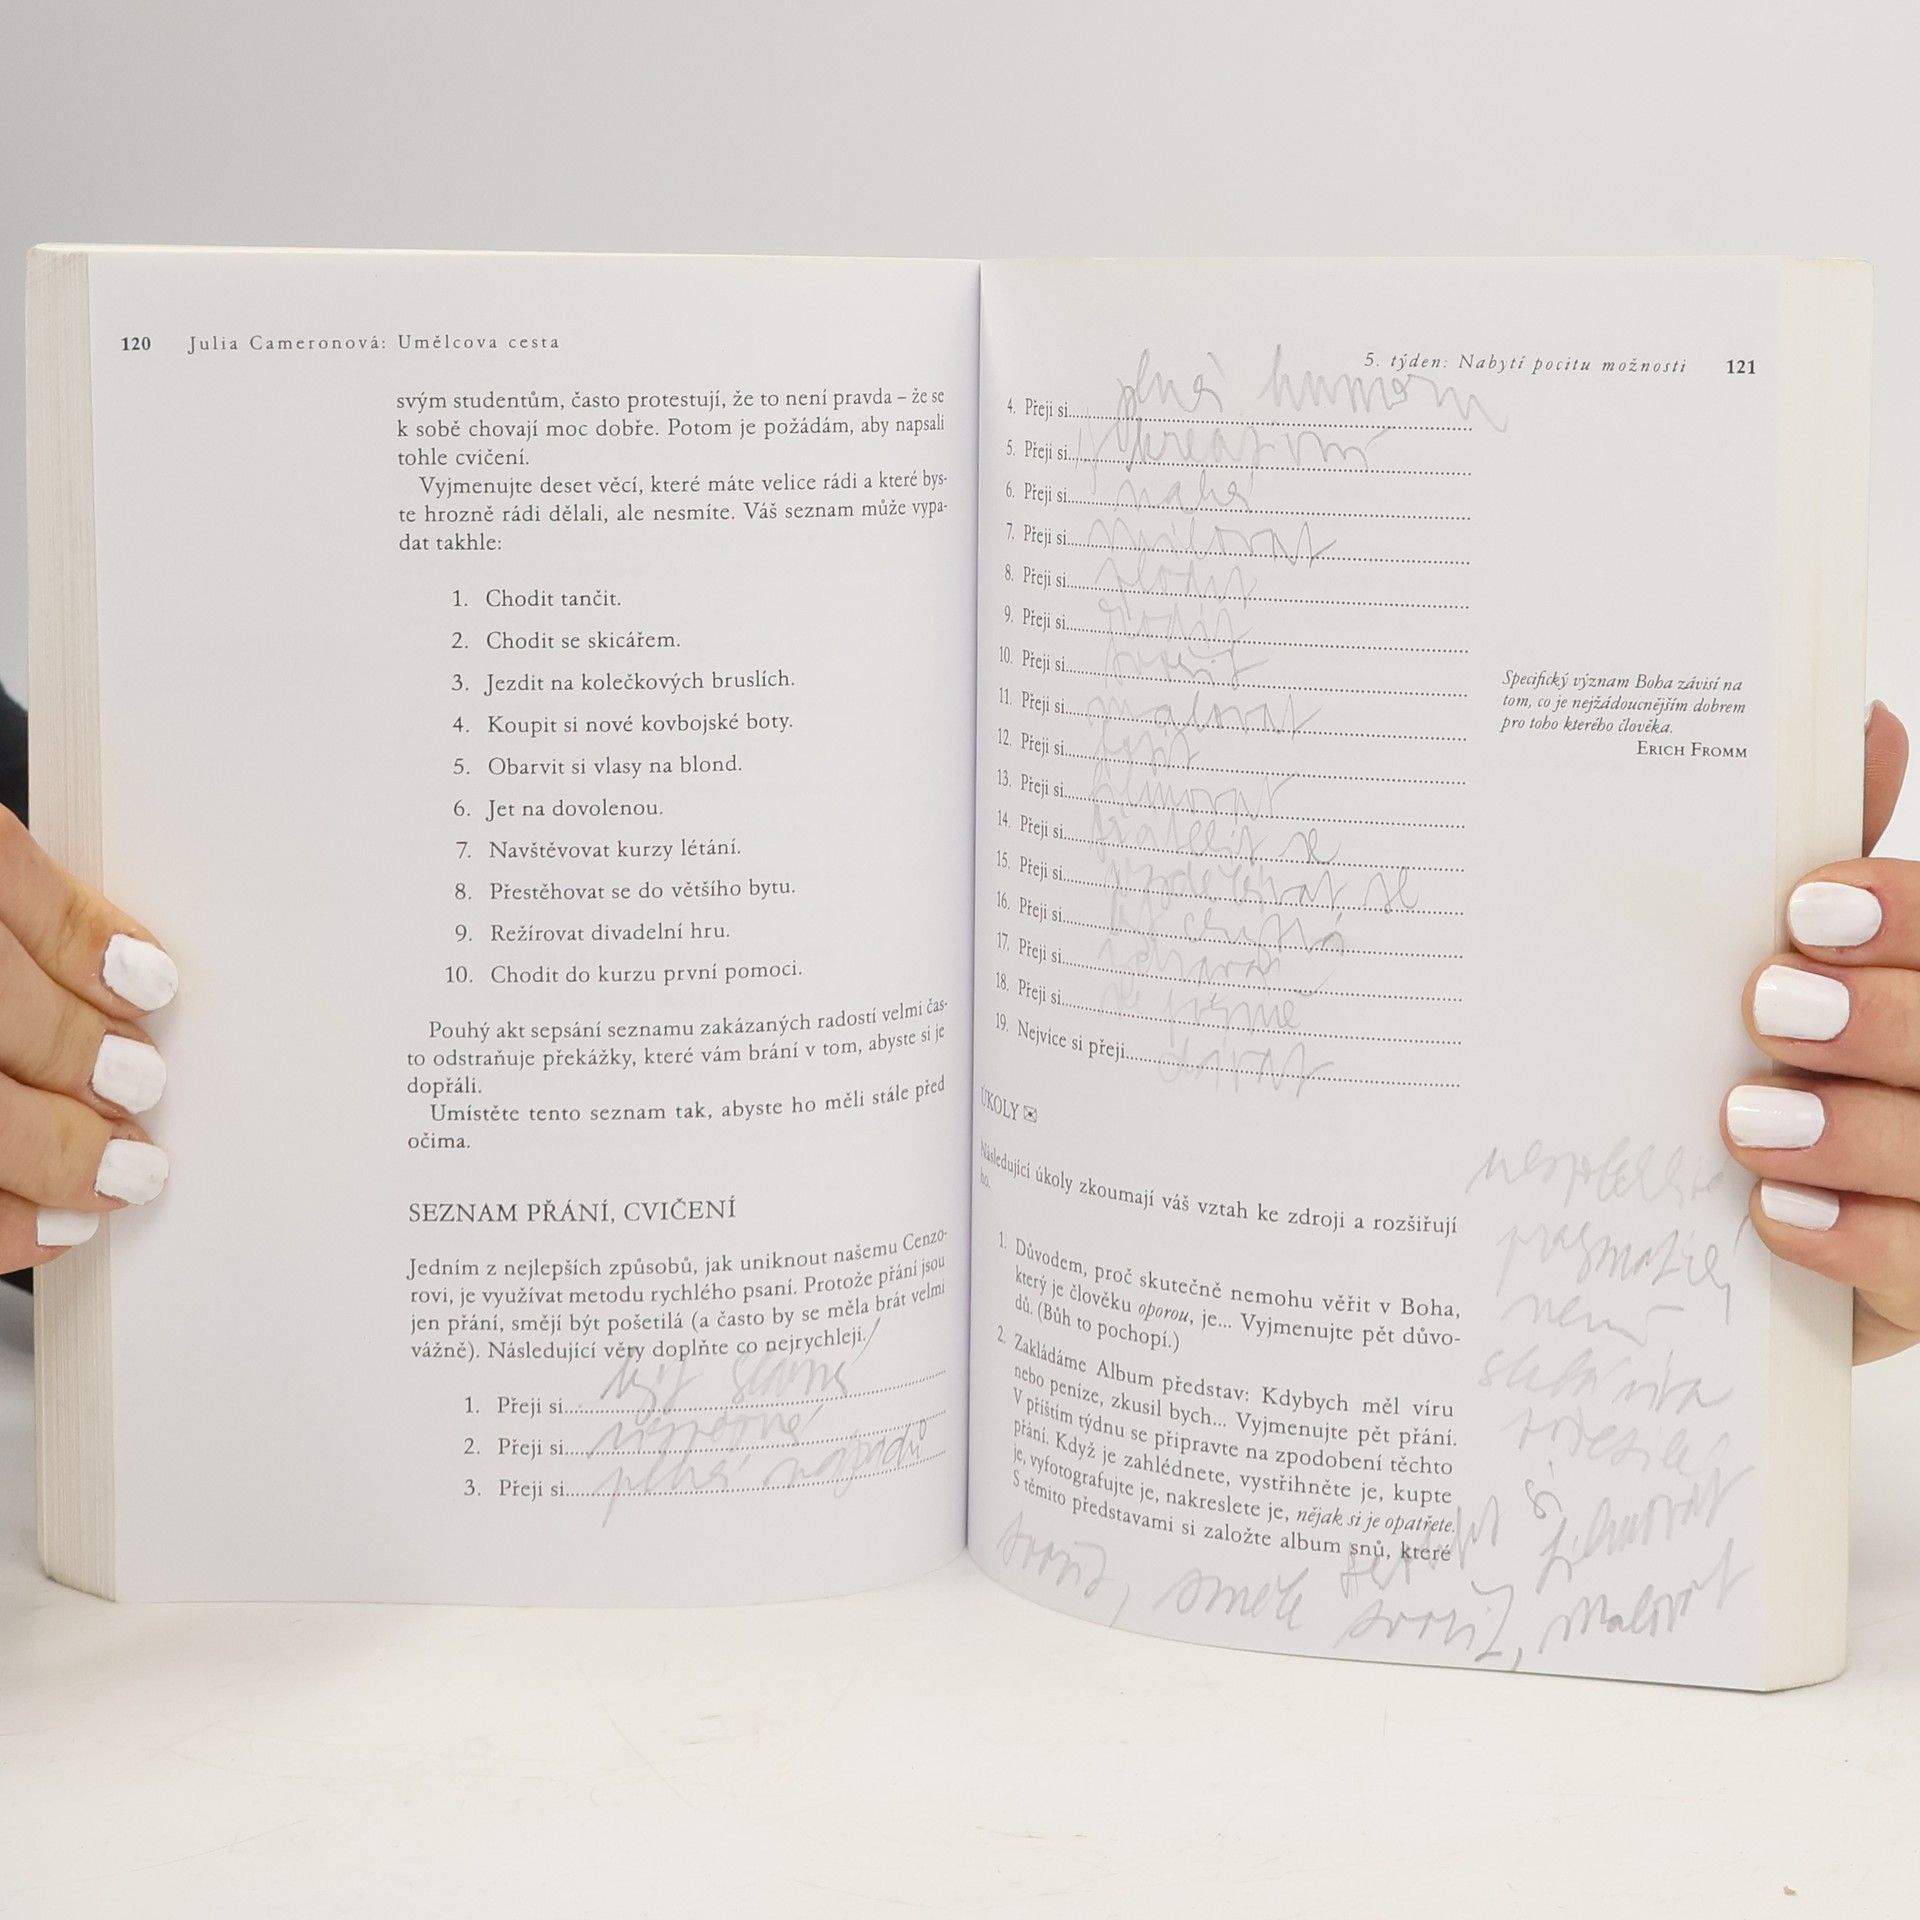 120 Julia Cameronová: Umělcova cesta
svým studentům, často protestují, že to není pravda – že se
k sobě chovají moc dobře. Potom je požádám, aby napsali
tohle cvičení.
Vyjmenujte deset věcí, které máte velice rádi a které bys-
te hrozně rádi dělali, ale nesmíte. Váš seznam může vypa-
dat takhle:
1. Chodit tančit.
2. Chodit se skicářem.
3. Jezdit na kolečkových bruslích.
4. Koupit si nové kovbojské boty.
5. Obarvit si vlasy na blond.
6. Jet na dovolenou.
7. Navštěvovat kurzy létání.
8. Přestěhovat se do většího bytu.
9. Režírovat divadelní hru.
10. Chodit do kurzu první pomoci.
Pouhý akt sepsání seznamu zakázaných radostí velmi čas-
to odstraňuje překážky, které vám brání v tom, abyste si je
dopřáli.
Umístěte tento seznam tak, abyste ho měli stále před
očima.
SEZNAM PŘÁNÍ, CVIČENÍ
Jedním z nejlepších způsobů, jak uniknout našemu Cenzo-
rovi, je využívat metodu rychlého psaní. Protože přání jsou
jen přání, smějí být pošetilá (a často by se měla brát velmi
vážně). Následující věty doplňte co nejrychleji.
1. Přeji si být slavná
2. Přeji si
3. Přeji si plná nápadů
5. týden: Nabytí pocitu možnosti 121
4. Přeji si plná humoru
5. Přeji si kreativní
6. Přeji si nahá
7. Přeji si milovat
8. Přeji si plodit
9. Přeji si rodit
10. Přeji si tvořit
11. Přeji si malovat
12. Přeji si
13. Přeji si filmovat
14. Přeji si přátelit se
15. Přeji si vzdělávat se
16. Přeji si být chytrá
17. Přeji si
18. Přeji si
19. Nejvíce si přeji
Specifický význam Boha závisí na
tom, co je nejžádoucnějším dobrem
pro toho kterého člověka.
ERICH FROMM
ÚKOLY
Následující úkoly zkoumají váš vztah ke zdroji a rozšiřují
ho.
1. Důvodem, proč skutečně nemohu věřit v Boha,
který je člověku oporou, je... Vyjmenujte pět důvo-
dů. (Bůh to pochopí.)
2. Zakládáme Album představ: Kdybych měl víru
nebo peníze, zkusil bych... Vyjmenujte pět přání.
V příštím týdnu se připravte na zpodobení těchto
přání. Když je zahlédnete, vystřihněte je, kupte
je, vyfotografujte je, nakreslete je, nějak si je opatřete.
S těmito představami si založte album snů, které
není
slabá víra
filmovat
tvořit, směle tvořit, malovat